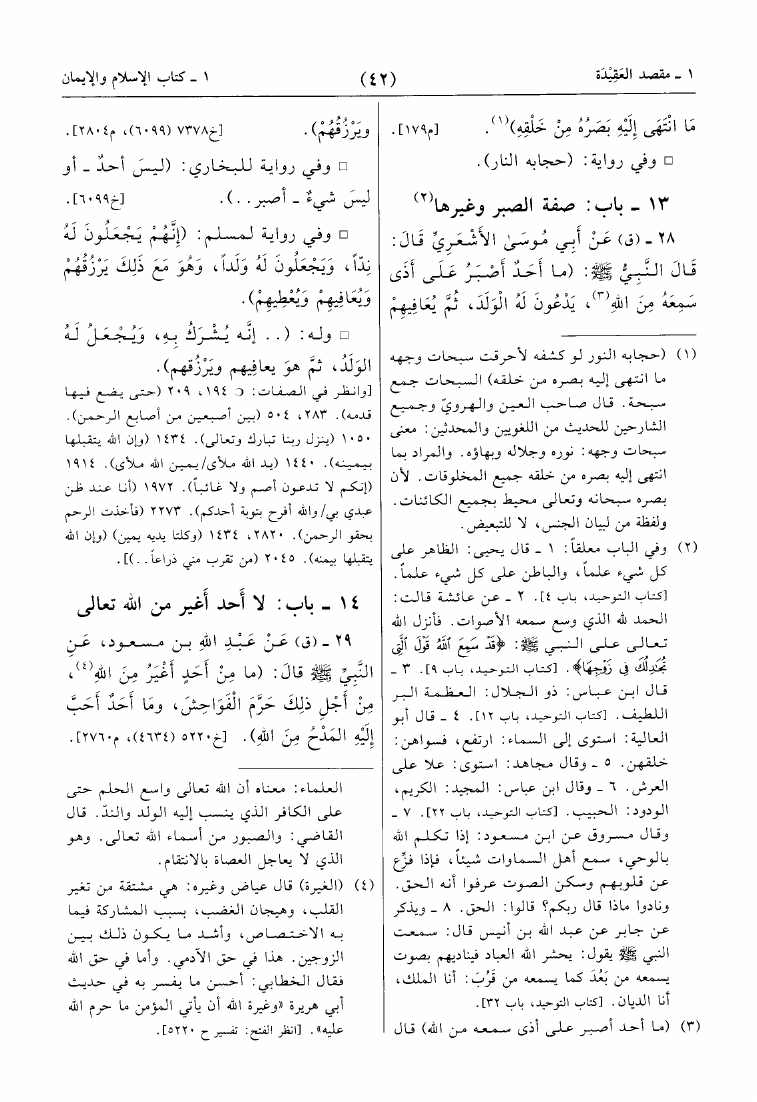 ١ ـ مقصد العَقِيْدَة
(٤٢)
١ ـ كتاب الإسلام والإيمان
مَا انْتَهَى إِلَيْهِ بَصَرُهُ مِنْ خَلْقِهِ)(١). [م١٧٩].
□ وفي رواية: (حجابه النار).
١٣ ـ باب: صفة الصبر وغيرها(٢)
٢٨ ـ (ق) عَنْ أَبِي مُوسَىٰ الأَشْعَرِيِّ قَالَ:
قَالَ النَّبِيُّ ﷺ: (ما أَحَدٌ أَصْبَرُ عَلَى أَذًى
سَمِعَهُ مِنَ اللهِ(٣)، يَدْعُونَ لَهُ الْوَلَدَ، ثُمَّ يُعَافِيهِمْ
(١) (حجابه النور لو كشفه لأحرقت سبحات وجهه
ما انتهى إليه بصره من خلقه) السبحات جمع
سبحة. قال صاحب العين والهرويّ وجميع
الشارحين للحديث من اللغويين والمحدثين: معنى
سبحات وجهه: نوره وجلاله وبهاؤه. والمراد بما
انتهى إليه بصره من خلقه جميع المخلوقات. لأن
بصره سبحانه وتعالى محيط بجميع الكائنات.
ولفظة من لبيان الجنس، لا للتبعيض.
(٢) وفي الباب معلقاً: ١ ـ قال يحيى: الظاهر على
كل شيء علماً، والباطن على كل شيء علماً.
[كتاب التوحيد، باب ٤]. ٢ ـ عن عائشة قالت:
الحمد لله الذي وسع سمعه الأصوات. فأنزل الله
تعالى على النبي ﷺ: ﴿قَدْ سَمِعَ اللَّهُ قَوْلَ الَّتِي
تُجَادِلُكَ فِي زَوْجِهَا﴾. [كتاب التوحيد، باب ٩]. ٣ ـ
قال ابن عباس: ذو الجلال: العظمة البر
اللطيف. [كتاب التوحيد، باب ١٢]. ٤ ـ قال أبو
العالية: استوى إلى السماء: ارتفع، فسواهن:
خلقهن. ٥ ـ وقال مجاهد: استوى: علا على
العرش. ٦ ـ وقال ابن عباس: المجيد: الكريم،
الودود: الحبيب. [كتاب التوحيد، باب ٢٢]. ٧ ـ
وقال مسروق عن ابن مسعود: إذا تكلم الله
بالوحي، سمع أهل السماوات شيئاً، فإذا فزّع
عن قلوبهم وسكن الصوت عرفوا أنه الحق.
ونادوا ماذا قال ربكم؟ قالوا: الحق. ٨ ـ ويذكر
عن جابر عن عبد الله بن أنيس قال: سمعت
النبي ﷺ يقول: يحشر الله العباد فيناديهم بصوت
يسمعه من بَعُدَ كما يسمعه من قَرُبَ: أنا الملك،
أنا الديان. [كتاب التوحيد، باب ٣٢].
(٣) (ما أحد أصبر على أذى سمعه من الله) قال
ويَرْزُقُهُمْ). [خ٧٣٧٨ (٦٠٩٩)، م٢٨٠٤].
□ وفي رواية للبخاري: (ليسَ أحدٌ ـ أو
ليسَ شيءٌ ـ أصبر..). [خ٦٠٩٩].
□ وفي رواية لمسلم: (إِنَّهُمْ يَجْعَلُونَ لَهُ
نِدّاً، وَيَجْعَلُونَ لَهُ وَلَداً، وَهُوَ مَعَ ذٰلِكَ يَرْزُقُهُمْ
وَيُعَافِيهِمْ وَيُعْطِيهِمْ).
□ وله: (.. إنَّه يُشْرَكُ بِهِ، وَيُجْعَلُ لَهُ
الوَلَدُ، ثمَّ هوَ يعافِيهِم ويَرْزُقهم).
[وانظر في الصفات: ح ١٩٤، ٢٠٩ (حتى يضع فيها
قدمه). ٢٨٣، ٥٠٤ (بين أصبعين من أصابع الرحمن).
١٠٥٠ (ينزل ربنا تبارك وتعالى). ١٤٣٤ (وإن الله يتقبلها
بيمينه). ١٤٤٠ (يد الله ملأى/يمين الله ملأى). ١٩١٤
(إنكم لا تدعون أصم ولا غائباً). ١٩٧٢ (أنا عند ظن
عبدي بي/والله أفرح بتوبة أحدكم). ٢٢٧٣ (فأخذت الرحم
بحقو الرحمن). ٢٨٢٠، ١٤٣٤ (وكلتا يديه يمين) (وإن الله
يتقبلها بيمنه). ٢٠٤٥ (من تقرب مني ذراعاً..)].
١٤ ـ باب: لا أَحد أَغير من الله تعالى
٢٩ ـ (ق) عَنْ عَبْدِ اللهِ بن مسعود، عَنِ
النَّبِيِّ ﷺ قَالَ: (ما مِنْ أَحَدٍ أَغْيَرُ مِنَ اللهِ(٤)،
مِنْ أَجْلِ ذلِكَ حَرَّمَ الْفَوَاحِشَ، وَمَا أَحَدٌ أَحَبَّ
إِلَيْهِ المَدْحُ مِنَ اللهِ). [خ٥٢٢٠ (٤٦٣٤)، م٢٧٦٠].
العلماء: معناه أن الله تعالى واسع الحلم حتى
على الكافر الذي ينسب إليه الولد والندّ. قال
القاضي: والصبور من أسماء الله تعالى. وهو
الذي لا يعاجل العصاة بالانتقام.
(٤) (الغيرة) قال عياض وغيره: هي مشتقة من تغير
القلب، وهيجان الغضب، بسبب المشاركة فيما
به الاختصاص، وأشد ما يكون ذلك بين
الزوجين. هذا في حق الآدمي. وأما في حق الله
فقال الخطابي: أحسن ما يفسر به في حديث
أبي هريرة «وغيرة الله أن يأتي المؤمن ما حرم الله
عليه». [انظر الفتح: تفسير ح ٥٢٢٠].